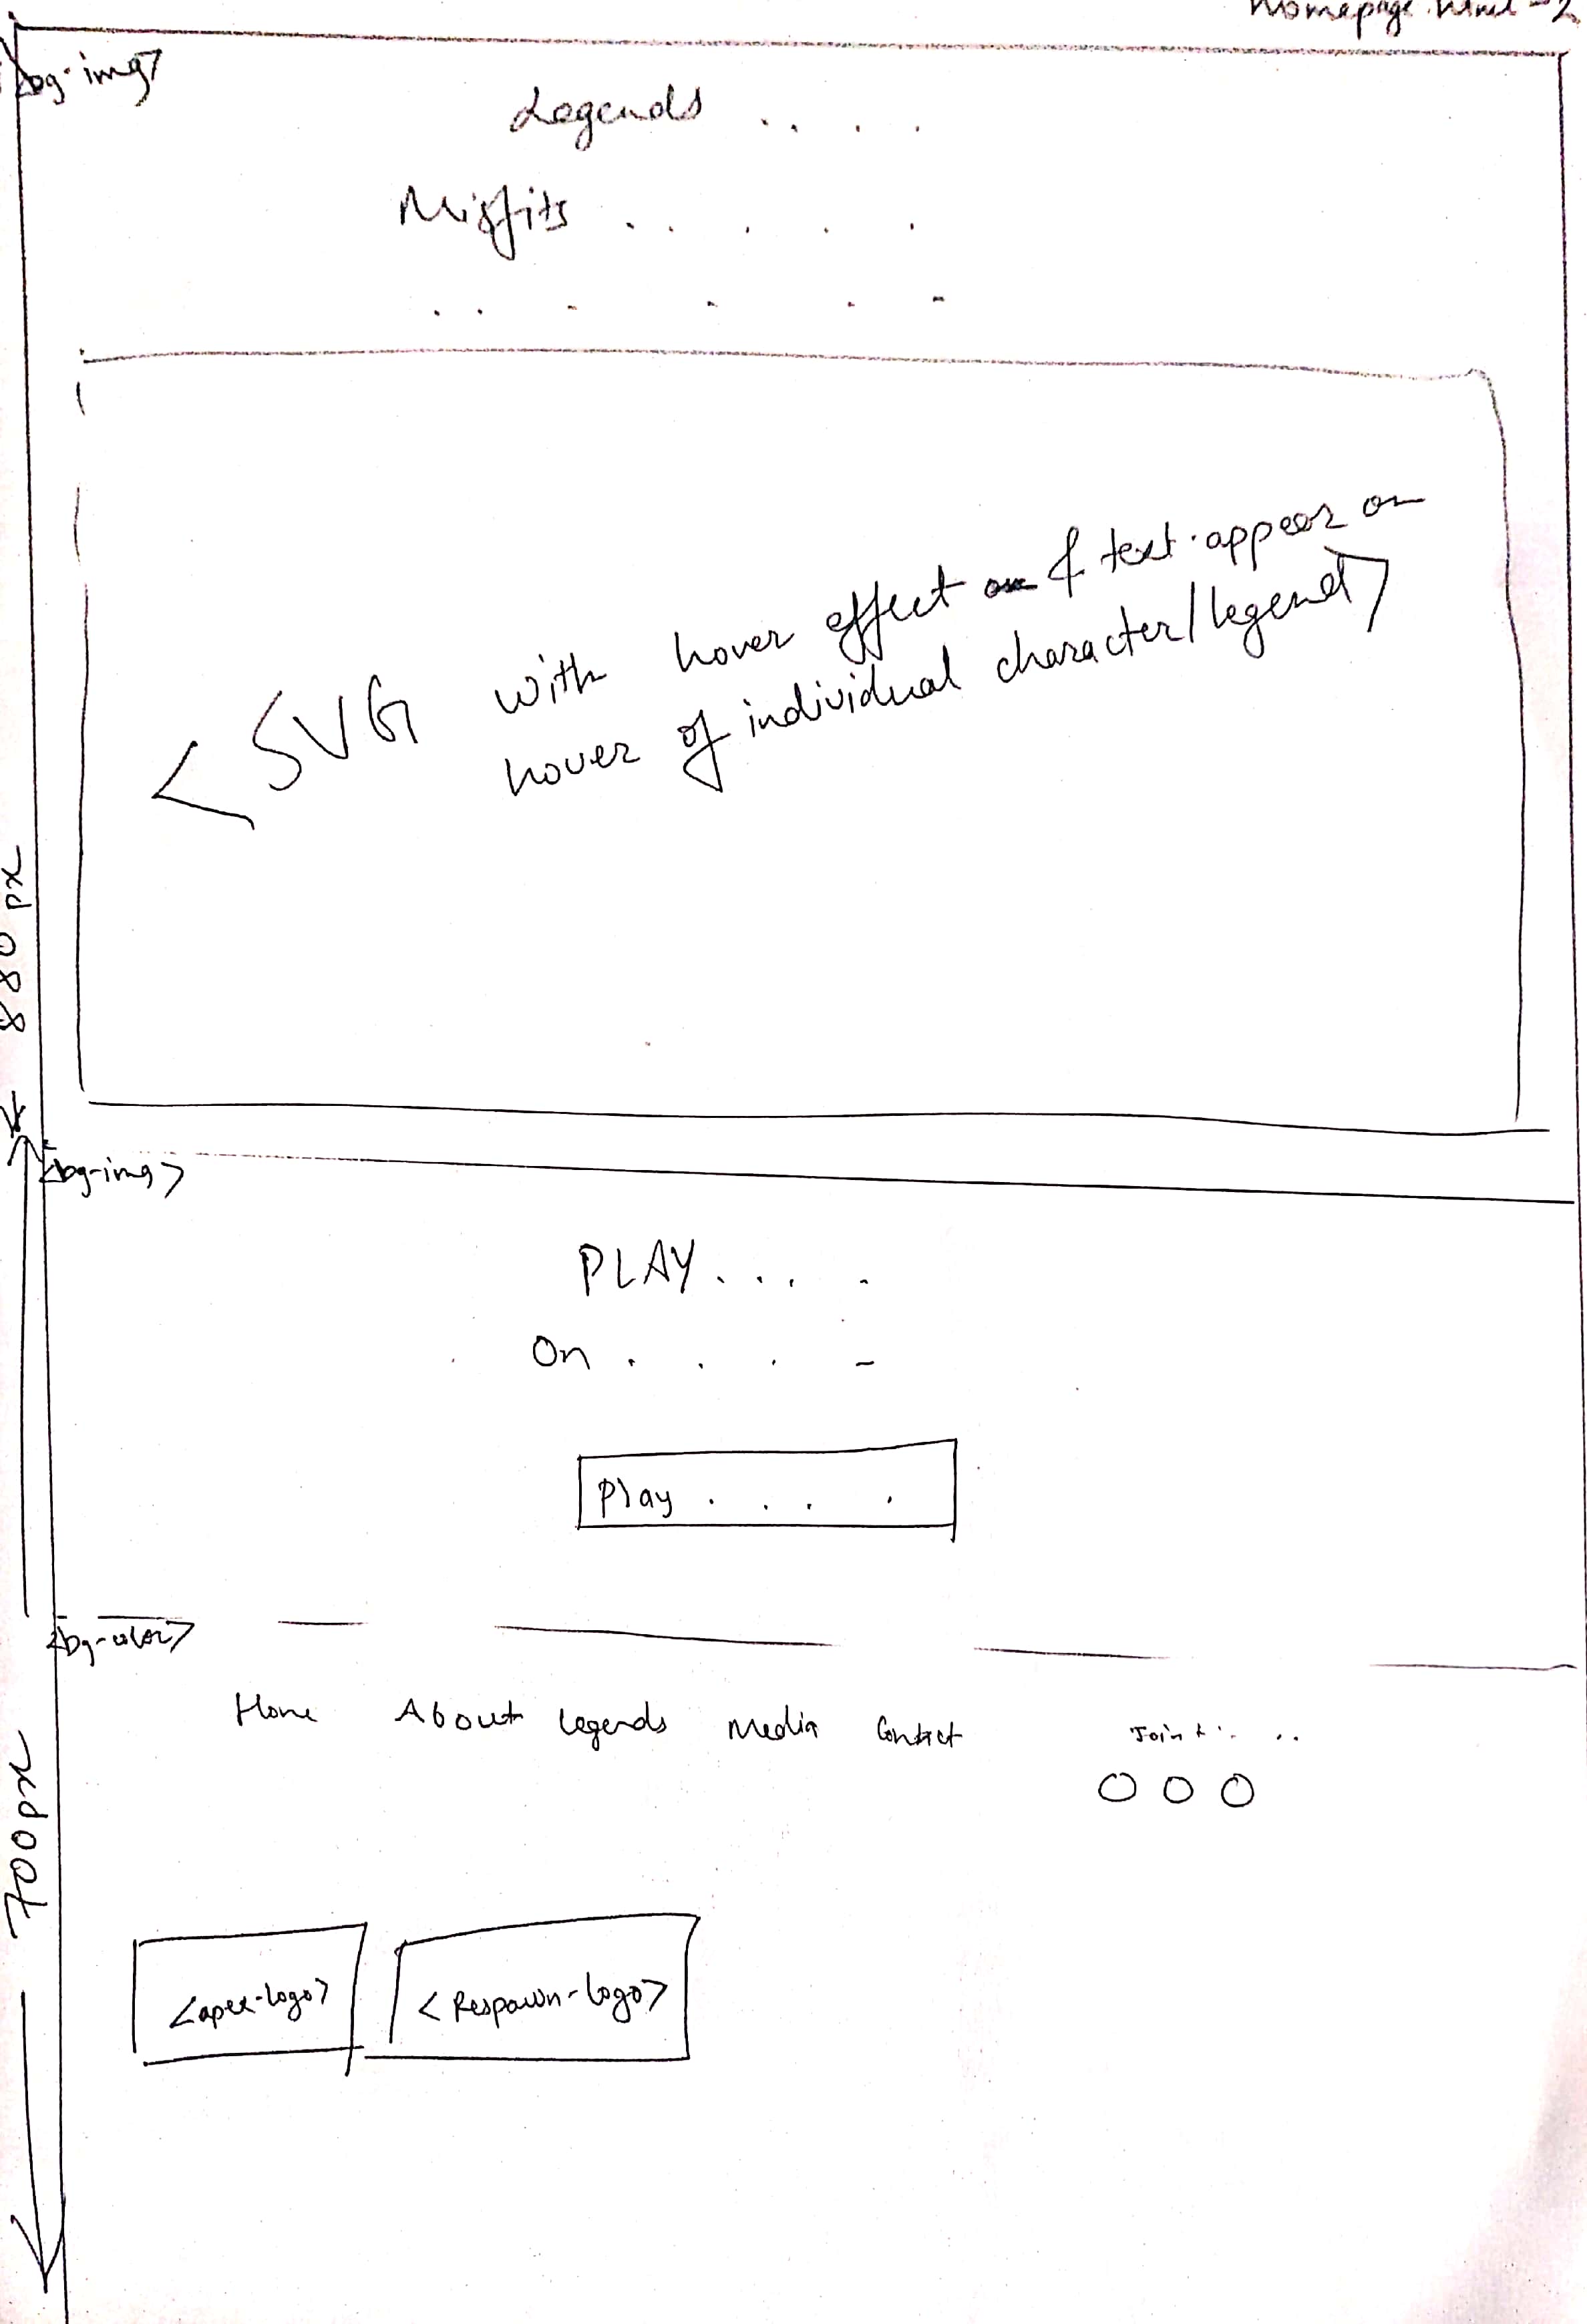 Homepage.html - 2
<bg-img>
Legends .. . .
Misfits . . . . .
.. - - - -
<SVG with hover effect & text appear on
hover of individual character/legend>
880 px
<bg-img>
PLAY . . . .
On . . . -
Play . . . .
<bg-color>
Home About legends Media Contact Join t . . ..
700px
<apex-logo> <Respawn-logo>